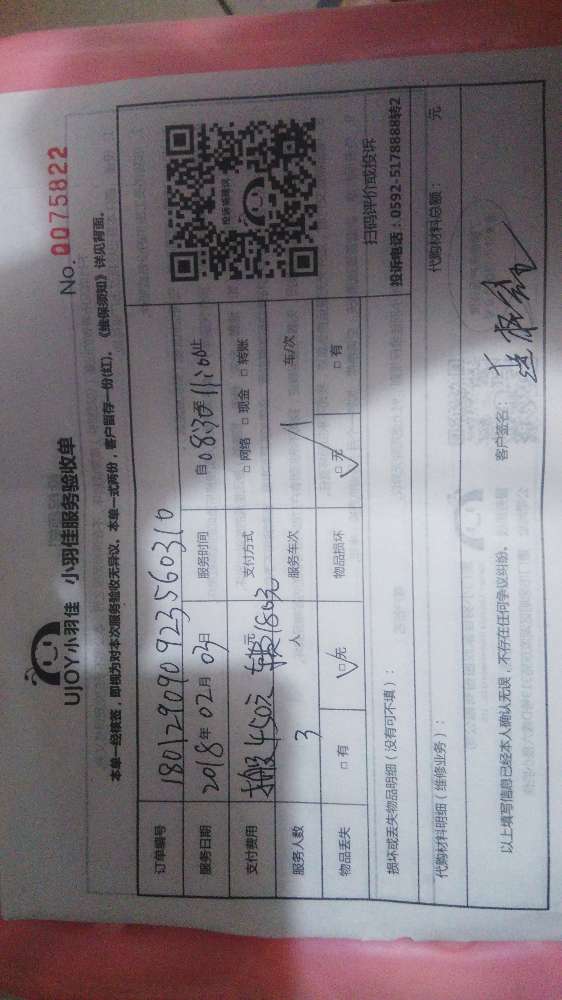 UJOY小羽佳 小羽佳服务验收单
No. 0075822
本单一经核签,即视为对本次服务验收无异议。本单一式两份,客户留存一份(红)。《维保须知》详见背面。
订单编号 180129090923560310
服务日期 2018年02月03日 服务时间 自08:30至11:00止
支付费用 搬450元 车180元 元 支付方式 □网络 □现金 □转账
服务人数 3 人 服务车次 1 车/次
物品丢失 □有 ☑无 物品损坏 ☑无 □有
投诉或建议
扫码评价或投诉
投诉电话:0592-5178888转2
损坏或丢失物品明细(没有可不填):
代购材料明细(维修业务): 代购材料总额: 元
以上填写信息已经本人确认无误,不存在任何争议纠纷。 客户签名: